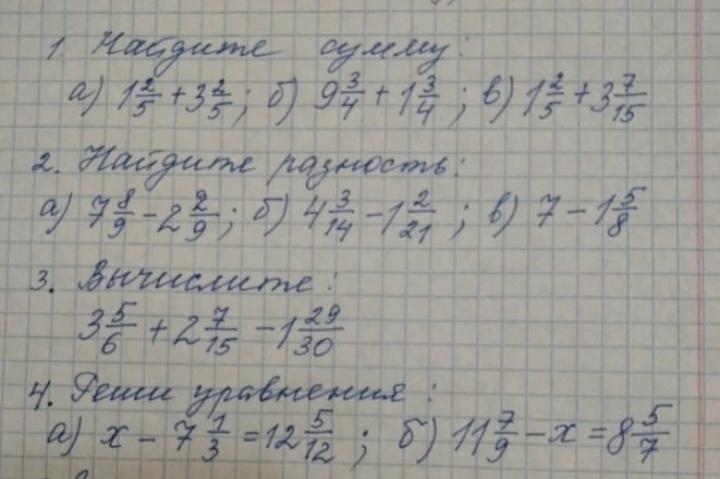 1. Найдите сумму:
а) 1 2/5 + 3 2/5; б) 9 3/4 + 1 3/4; в) 1 2/5 + 3 7/15
2. Найдите разность:
а) 7 8/9 - 2 2/9; б) 4 3/14 - 1 2/21; в) 7 - 1 5/8
3. Вычислите:
3 5/6 + 2 7/15 - 1 29/30
4. Реши уравнения:
а) х - 7 1/3 = 12 5/12; б) 11 7/9 - х = 8 5/7